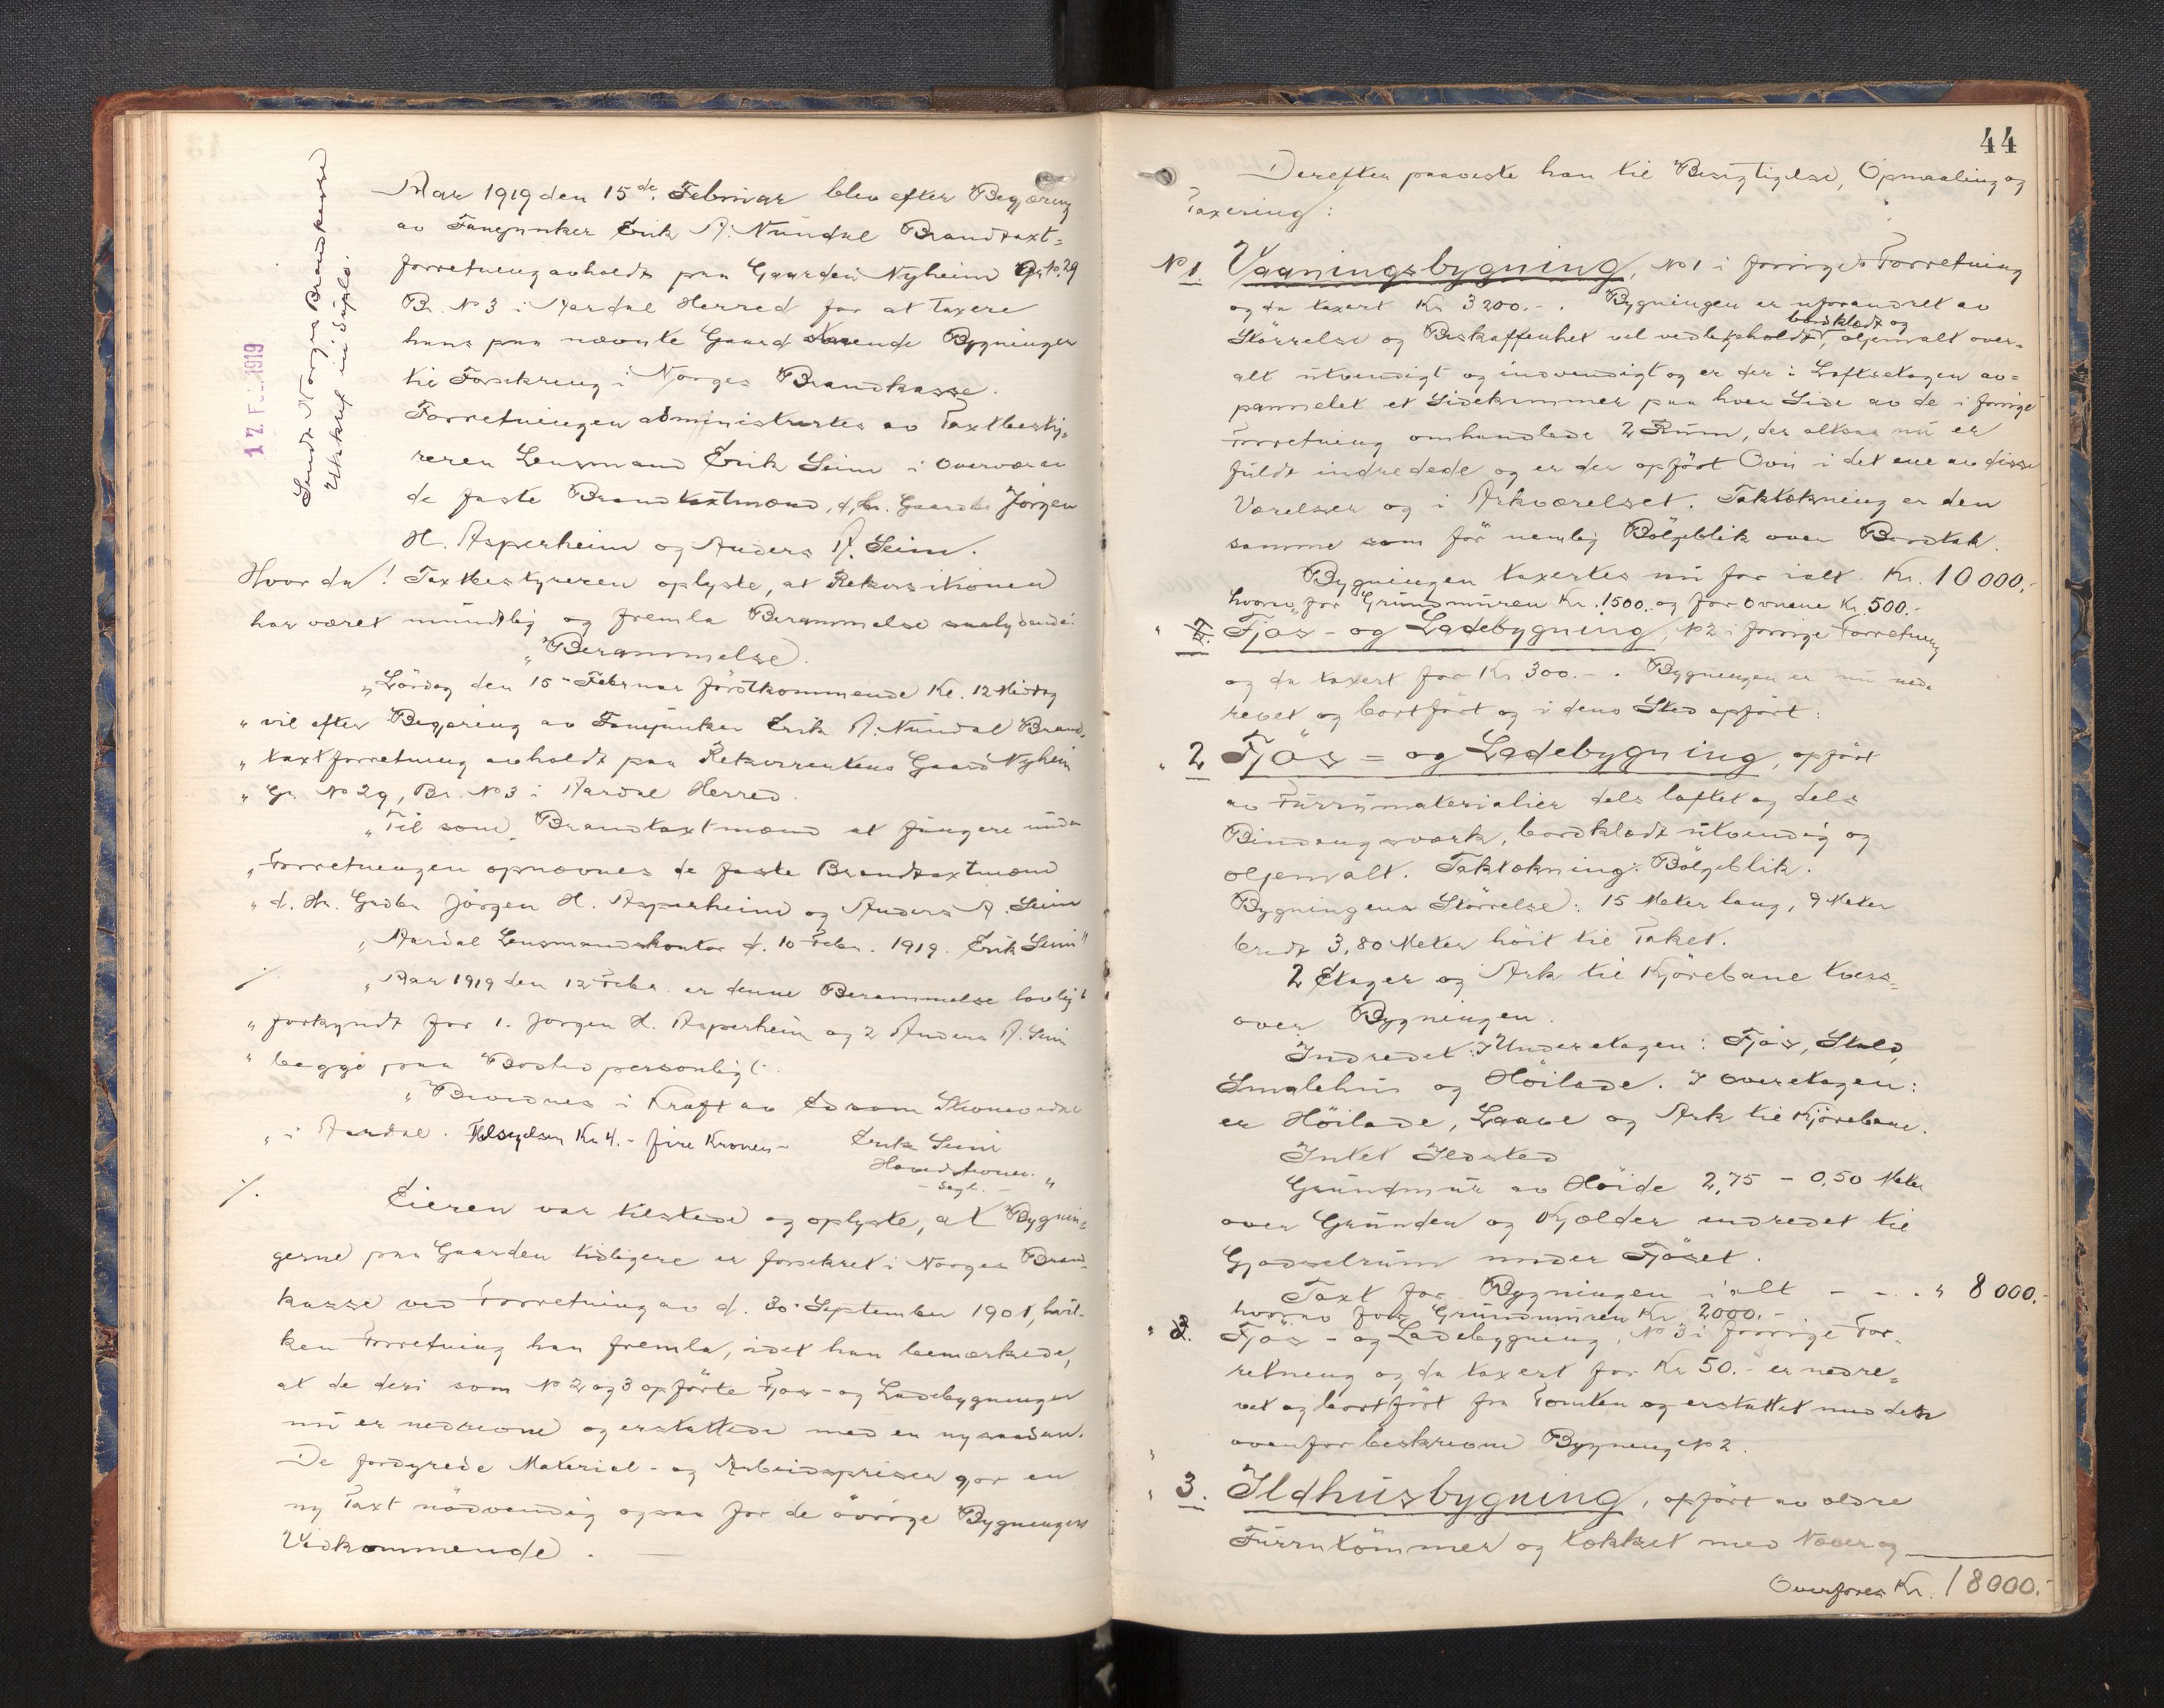 Sendt Norges Brandkasse
Utskrift in duplo.
17. FEB. 1919
Aar 1919 den 15de Februar blev efter Begjæring
av Fanejunker Erik A. Nundal Brandtaxt=
forretning avholdt paa Gaarden Nyheim Gr. No. 29
Br. No 3 i Aardal Herred for at taxere
hans paa nævnte Gaard staaende Bygninger
til Forsikring i Norges Brandkasse.
Forretningen administrertes av Taxtbesty,
reren Lensmand Erik Seim i Overvær av
de faste Brandtaxtmænd, d'hr. Gaardbr. Jörgen
H. Asperheim og Anders A. Seim.
Hvor da! Taxtbestyreren oplyste, at Rekvisitionen
har været mundtlig og fremla Berammelse saalydende:
"Berammelse.
"Lördag den 15de Februar förstkommende Kl. 12 Middag
" vil efter Begjæring av Fanejunker Erik A. Nundal Brand,
" taxtforretning avholdt paa Rekvirentens Gaard Nyheim
" Gr. No 29, Br. No 3 i Aardal Herred.
"Til som Brandtaxtmænd at fungere under
"Forretningen opnævnes de faste Brandtaxtmænd
" d. Hr. Grdbr. Jörgen H. Asperheim og Anders A. Seim
"Aardal Lensmandskontor d. 10 Febr. 1919. Erik Seim"
"Aar 1919 den 12 Febr. er denne Berammelse lovligt
" forkyndt for 1. Jorgen H. Asperheim og 2 Anders A. Seim
" begge paa Bosted personligt.
"Bevidnes i Kraft av Ed som Stevnevidne
" i Aardal. Forkyndelsen Kr 4.- fire Kroner- Erik Seim
Hovedstevnev. "
- Segl. -
Eieren var tilstede og oplyste, at Bygnin=
gerne paa Gaarden tidligere er forsikret i Norges Brand=
kasse ved Forretning av d. 30. September 1901, hvil-
ken Forretning han fremla, idet han bemerkede,
at de deri som No 2 og 3 opförte Fjøs- og Ladebygninger
nu er nedrevne og erstattede med en ny saadan.
De fordyrede Material- og Arbeidspriser gjør en
ny Taxt nödvendig ogsaa for de övrige Bygningers
Vedkommende.
44
Derefter paaviste han til Besigtigelse, Opmaaling og
Taxering:
No 1. Vaaningsbygning, No 1 i forrige Forretning
og da taxert Kr 3200.-. Bygningen er uforandret av
bordklædt og
Störrelse og Beskaffenhet vel vedlikeholdt, oljemalt over=
alt utvendigt og indvendigt og er der i Loftsetagen av=
pannelet et Sidekammer paa hver Side av de i forrige
Forretning omhandlede 2 Rum, der altsaa nu er
fuldt indredede og er der opfört Ovn i det ene av disse
Værelser og i Arkværelset. Taktækning er den
samme som för nemlig Bölgeblik over Bordtak.
Bygningen taxertes nu for ialt Kr. 10 000.-
hvorav for Grundmuren Kr. 1500. og for Ovnene Kr. 500.-
" 2. Fjøs- og Ladebygning, No 2 i forrige Forretning
og da taxert for Kr 300.-. Bygningen er nu ned=
revet og bortfört og i dens Sted opfört:
" 2 Fjös= og Ladebygning, opfört
av Furrumaterialier dels laftet og dels
Bindingsværk, bordklædt utvendig og
oljemalt. Taktækning: Bölgeblik.
Bygningens Störrelse: 15 Meter lang, 9 Meter
bredt 3,80 Meter höit til Taket.
2 Etager og Ark til Kjörebane tvers=
over Bygningen.
Indredet: I Underetagen: Fjös, Stald,
Smalehus og Höilade. I Overetagen:
er Höilade, Laave og Ark til Kjörebane.
Intet Ildsted
Grundmur av Höide 2,75 - 0,50 Meter
over Grunden og Kjælder indredet til
Gjødselrum under Fjöset.
Taxt for Bygningen ialt - - - " 8 000.-
hvorav for Grundmuren Kr 2000.-
" 3. Fjøs- og Ladebygning, No 3 i forrige For-
retning og da taxert for Kr 50.- er nedre=
vet og bortfört fra Tomten og erstattet med den
ovenfor beskrevne Bygning No 2.
" 3. Ildhusbygning, opfört av ældre
Furrutömmer og tækket med Næver og
Overføres Kr. 18000.-